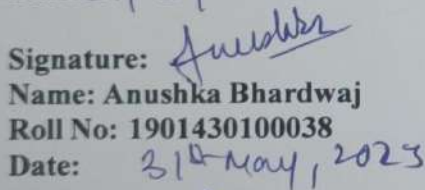 Signature: Anushka
Name: Anushka Bhardwaj
Roll No: 1901430100038
Date: 31st May, 2023